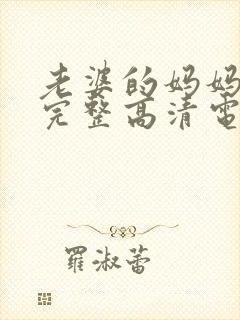 老婆的妈妈
完整高清电
羅淑蕾